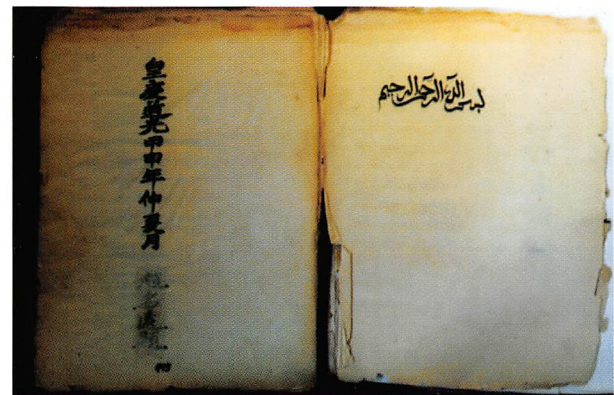 بسم الله الرحمن الرحيم
皇清道光甲申年仲夏月